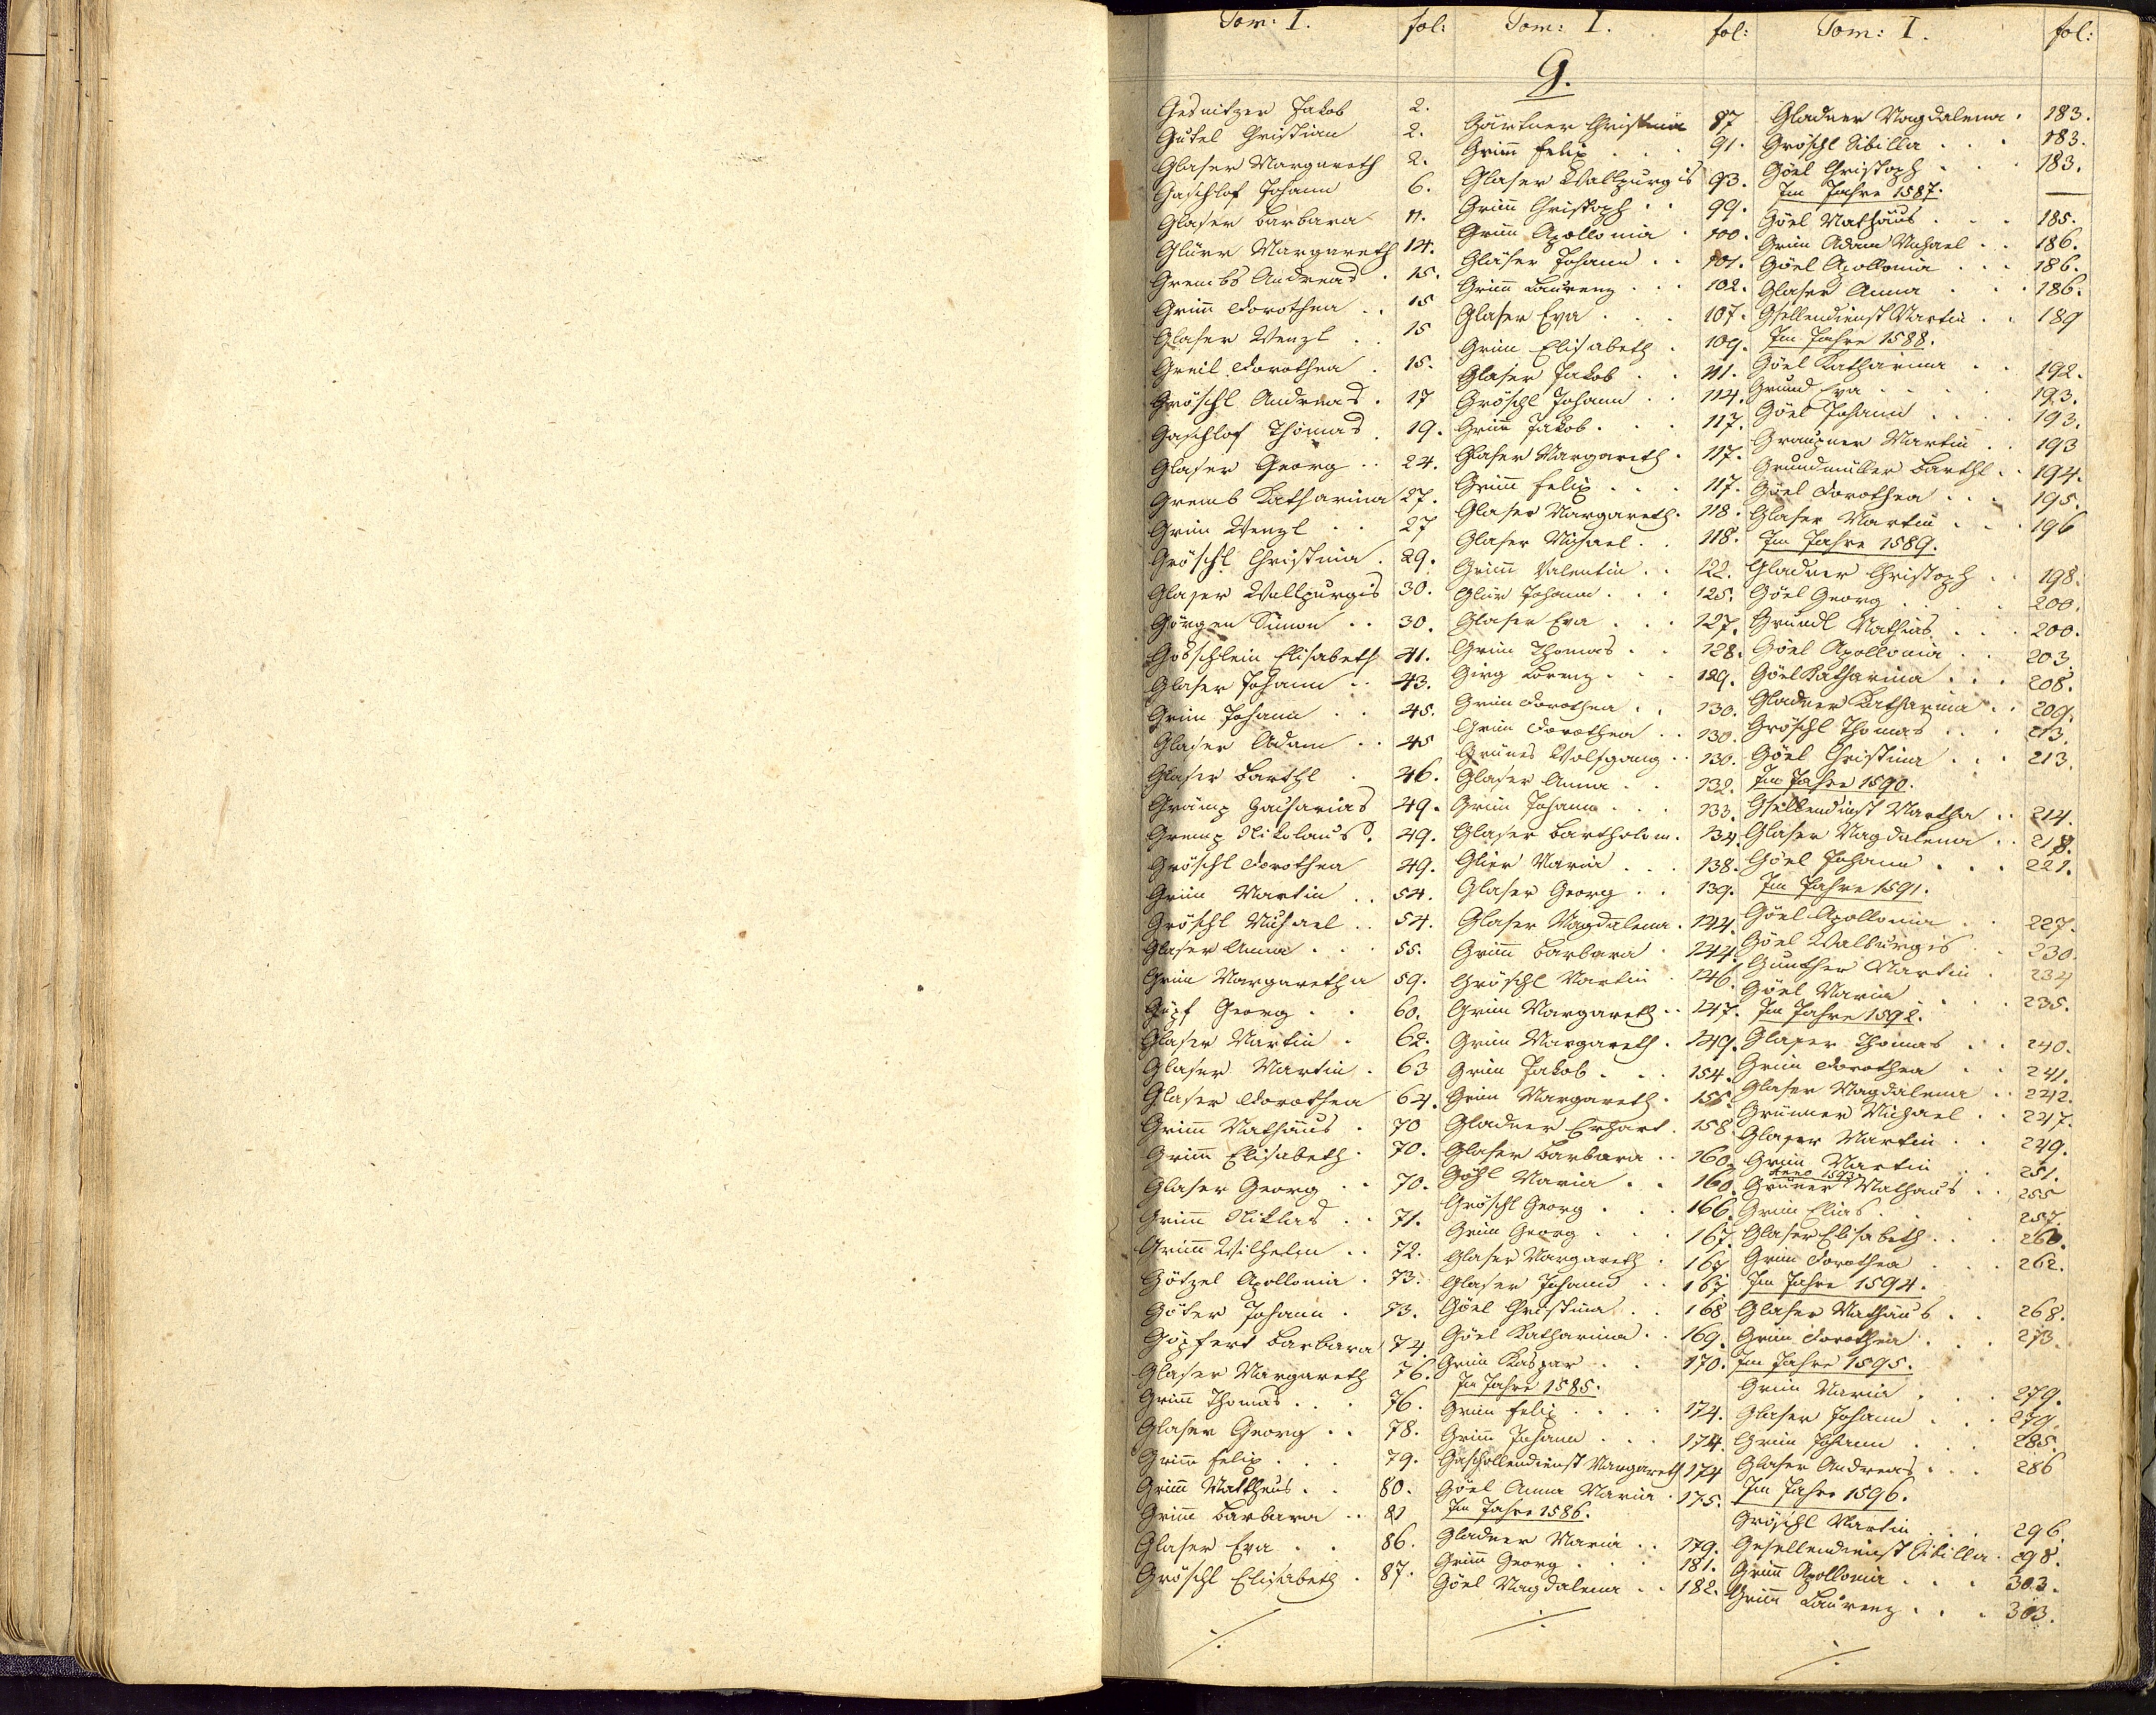 Tom: I. fol: Tom: I. fol: Tom: I. fol:
G.
Gesnitzer Jakob 2.
Gütel Christian 2.
Glaser Margareth 2.
Gaschlof Johann 6.
Glaser Barbara 11.
Glürr Margareth 14.
Grembs Andreas . 15.
Grim̄ Dorothea . . 15
Glaser Wenzl . . 15
Greil Dorothea . 15.
Gröschl Andreas . 17
Gaschlof Thomas . 19.
Glaser Georg . . 24.
Gremb Katharina 27.
Grim Wenzl . . 27
Gröschl Christina . 29.
Glaser Wallpurgis 30.
Görgen Simon . . 30.
Gobschlein Elisabeth 41.
Glaser Johann . . 43.
Grim Johann . . 45.
Glaser Adam . . 45
Glaser Barthl . 46.
Grämp Zacharias 49.
Gremp Nikolaus . 49.
Gröschl Dorothea 49.
Grim Martin . . 54.
Gröschl Michael . . 54.
Glaser Anna . . . 55.
Grim Margaretha 59.
Güpf Georg . . 60.
Glaser Martin . 62.
Glaser Martin . 63
Glaser Dorothea 64.
Grim̄ Mathäus . 70
Grim̄ Elisabeth . 70.
Glaser Georg . . 70.
Grim̄ Niklas . . 71.
Grim̄ Wilhelm . . 72.
Götzel Apollonia . 73.
Göter Johann . 73.
Göpfert Barbara 74.
Glaser Margareth 76.
Grim̄ Thomas . . . 76.
Glaser Georg . . 78.
Grim̄ Felix . . . 79.
Grim̄ Mattheus . . 80.
Grim̄ Barbara . . 81
Glaser Eva . . 86.
Gröschl Elisabeth . 87.
Gärtner Christina 87
Grim̄ Felix . . . 91.
Glaser Wallpurgis 93.
Grim̄ Christoph . . 99.
Grim̄ Apollonia . 100.
Gläser Johann . . 101.
Grim̄ Laurenz . . . 102.
Glaser Eva . . . 107.
Grim Elisabeth . 109.
Glaser Jakob . . 111.
Gröschl Johann . . 114.
Grim̄ Jakob . . . 117.
Glaser Margareth . 117.
Grim̄ Felix . . . 117.
Glaser Margareth . 118.
Glaser Michael . . 118.
Grim̄ Valentin . . 122.
Glür Johann . . . 125.
Glaser Eva . . . 127.
Grim Thomas . . 128.
Girg Lorenz . . . 129.
Grim Dorothea . . 130.
Grim Dorothea . . 130.
Grünes Wolfgang . . 130.
Glaser Anna . . 132.
Grim Johann . . . 133.
Glaser Bartholom. 134.
Glier Maria . . . 138.
Glaser Georg . . 139.
Glaser Magdalena . 144.
Grim̄ Barbara . 144.
Gröschl Martin . 146.
Grim Margareth . . 147.
Grim Margareth . 149.
Grim Jakob . . . 154.
Grim Margareth . 155.
Gladner Erhart . 158.
Glaser Barbara . . 160.
Göhl Maria . . 160.
Gröschl Georg . . . 166.
Grim Georg . . . 167.
Glaser Margareth . 167
Glaser Johann . . 167.
Göel Christina . . 168
Göel Katharina . . 169.
Grim Kaspar . . 170.
Im Jahre 1585.
Grim Felix . . . . 174.
Grim̄ Johann . . . 174.
Gaschollendienst Margareth 174
Göel Anna Maria . 175.
Im Jahre 1586.
Gladner Maria . . 179.
Grim̄ Georg . . . 181.
Göel Magdalena . . 182.
Gladner Magdalena . 183.
Gröschl Sibilla . . . 183.
Göel Christoph . . . 183.
Im Jahre 1587.
Göel Mathäus . . . 185.
Grim Adam Michael . . 186.
Göel Apollonia . . . 186.
Glaser Anna . . . 186.
Gsellendienst Martin . . 189
Im Jahre 1588.
Göel Katharina . . 192.
Grund Eva . . . . 193.
Göel Johann . . . . 193.
Graupner Martin . . 193
Grundmüller Barthl . . 194.
Göel Dorothea . . . 195.
Glaser Martin . . . 196
Im Jahre 1589.
Gladner Christoph . . 198.
Göel Georg . . . . 200.
Gründl Mathias . . . 200.
Göel Apollonia . . 203.
Göel Katharina . . . 208.
Gladner Katharina . . 209.
Gröschl Thomas . . . 213.
Göel Christina . . . 213.
Im Jahre 1590.
Gsellendienst Martha . . 214.
Glaser Magdalena . . 218.
Göel Johann . . . 221.
Im Jahre 1591.
Göel Apollonia . . 227.
Göel Walburgis . 230.
Gunther Martin . 234
Göel Maria . . . 235.
Im Jahre 1592.
Glaser Thomas . . . 240.
Grim Dorothea . . 241.
Glaser Magdalena . . 242.
Grünner Michael . . 247.
Glaser Martin . . 249.
Grim̄ Martin . . 251.
Anno 1593
Grüner Mathäus . . 255
Grim Elias . . . . 257.
Glaser Elisabeth . . . 260.
Grim Dorothea . . . 262.
Im Jahre 1594.
Glaser Mathäus . . . 268.
Grim Dorothea . . . 273.
Im Jahre 1595.
Grim Maria . . . . 279.
Glaser Johann . . . 279.
Grim Johann . . . 285.
Glaser Andreas . . . 286
Im Jahre 1596.
Gröschl Martin . . . 296.
Gesellendienst Sibilla . 298.
Grim̄ Apollonia . . . 303.
Grim̄ Laurenz . . . 303.